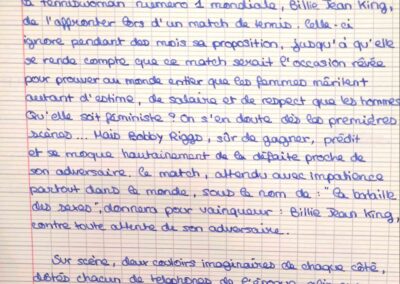 la tenniswoman numéro 1 mondiale, Billie Jean King,
de l'affronter lors d'un match de tennis. Celle-ci
ignore pendant des mois sa proposition, jusqu'à qu'elle
se rende compte que ce match serait l'occasion rêvée
pour prouver au monde entier que les femmes méritent
autant d'estime, de salaire et de respect que les hommes
Qu'elle soit féministe ? On s'en doute dès les premières
scènes... Mais Bobby Riggs, sûr de gagner, prédit
et se moque hautainement de la défaite proche de
son adversaire. Ce match, attendu avec impatience
partout dans le monde, sous le nom de : "la bataille
des sexes", donnera pour vainqueur : Billie Jean King,
contre toute attente de son adversaire...
Sur scène, deux couloirs imaginaires de chaque côté,
dotés chacun de téléphones de l'époque